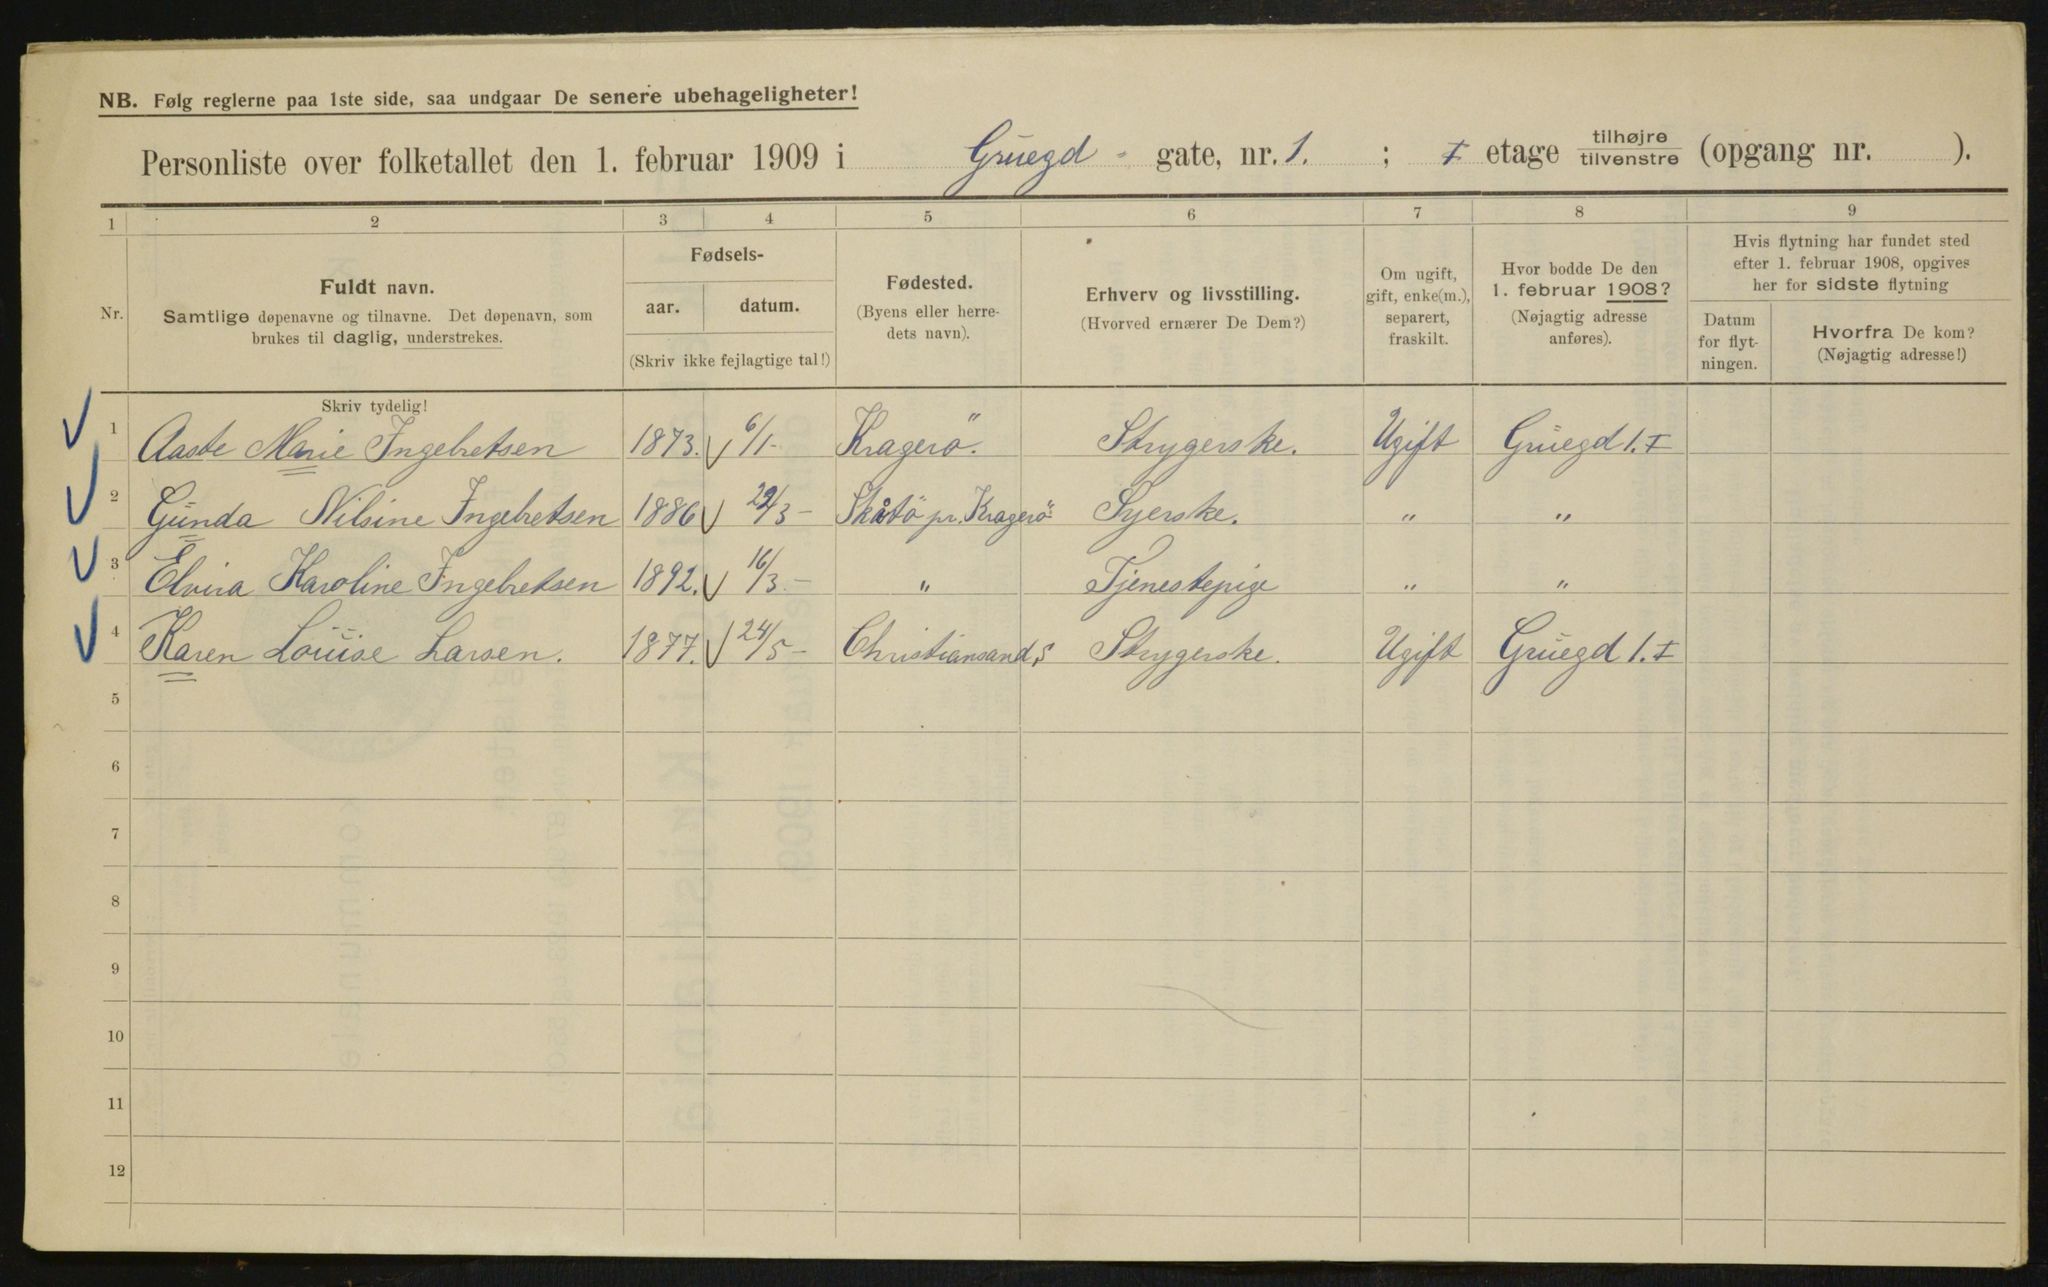 NB. Følg reglerne paa 1ste side, saa undgaar De senere ubehageligheter!
Personliste over folketallet den 1. februar 1909 i Gruegd - gate, nr. 1. ; I etage tilhøjre tilvenstre (opgang nr. ).
1 2 3 4 5 6 7 8 9
Nr.
Fuldt navn.
Samtlige døpenavne og tilnavne. Det døpenavn, som
brukes til daglig, understrekes.
Fødsels-
aar. datum.
(Skriv ikke fejlagtige tal!)
Fødested.
(Byens eller herre-
dets navn).
Erhverv og livsstilling.
(Hvorved ernærer De Dem?)
Om ugift,
gift, enke(m.),
separert,
fraskilt.
Hvor bodde De den
1. februar 1908?
(Nøjagtig adresse
anføres).
Hvis flytning har fundet sted
efter 1. februar 1908, opgives
her for sidste flytning
Datum
for flyt-
ningen.
Hvorfra De kom?
(Nøjagtig adresse!)
Skriv tydelig!
1 Aaste Marie Ingebretsen 1873. 6/1- Kragerö. Strygerske. Ugift Gruegd 1. I
2 Gunda Nilsine Ingebretsen 1886 22/3- Skåtö pr. Kragerö Syerske. " "
3 Elvira Karoline Ingebretsen 1892. 16/3- " Tjenestepige " "
4 Karen Louise Larsen. 1877. 24/5- Christiansand, S Strygerske. Ugift Gruegd 1. I
5
6
7
8
9
10
11
12